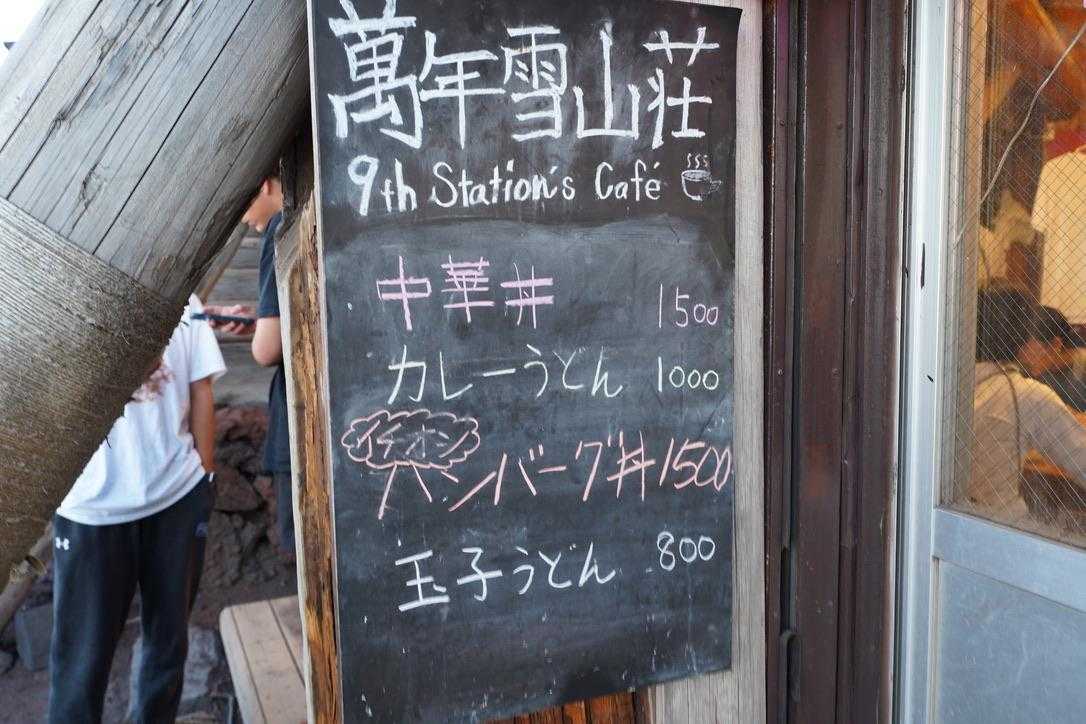 萬年雪山荘
9th Station's Café
中華丼 1500
カレーうどん 1000
イチオシ
ハンバーグ丼 1500
玉子うどん 800